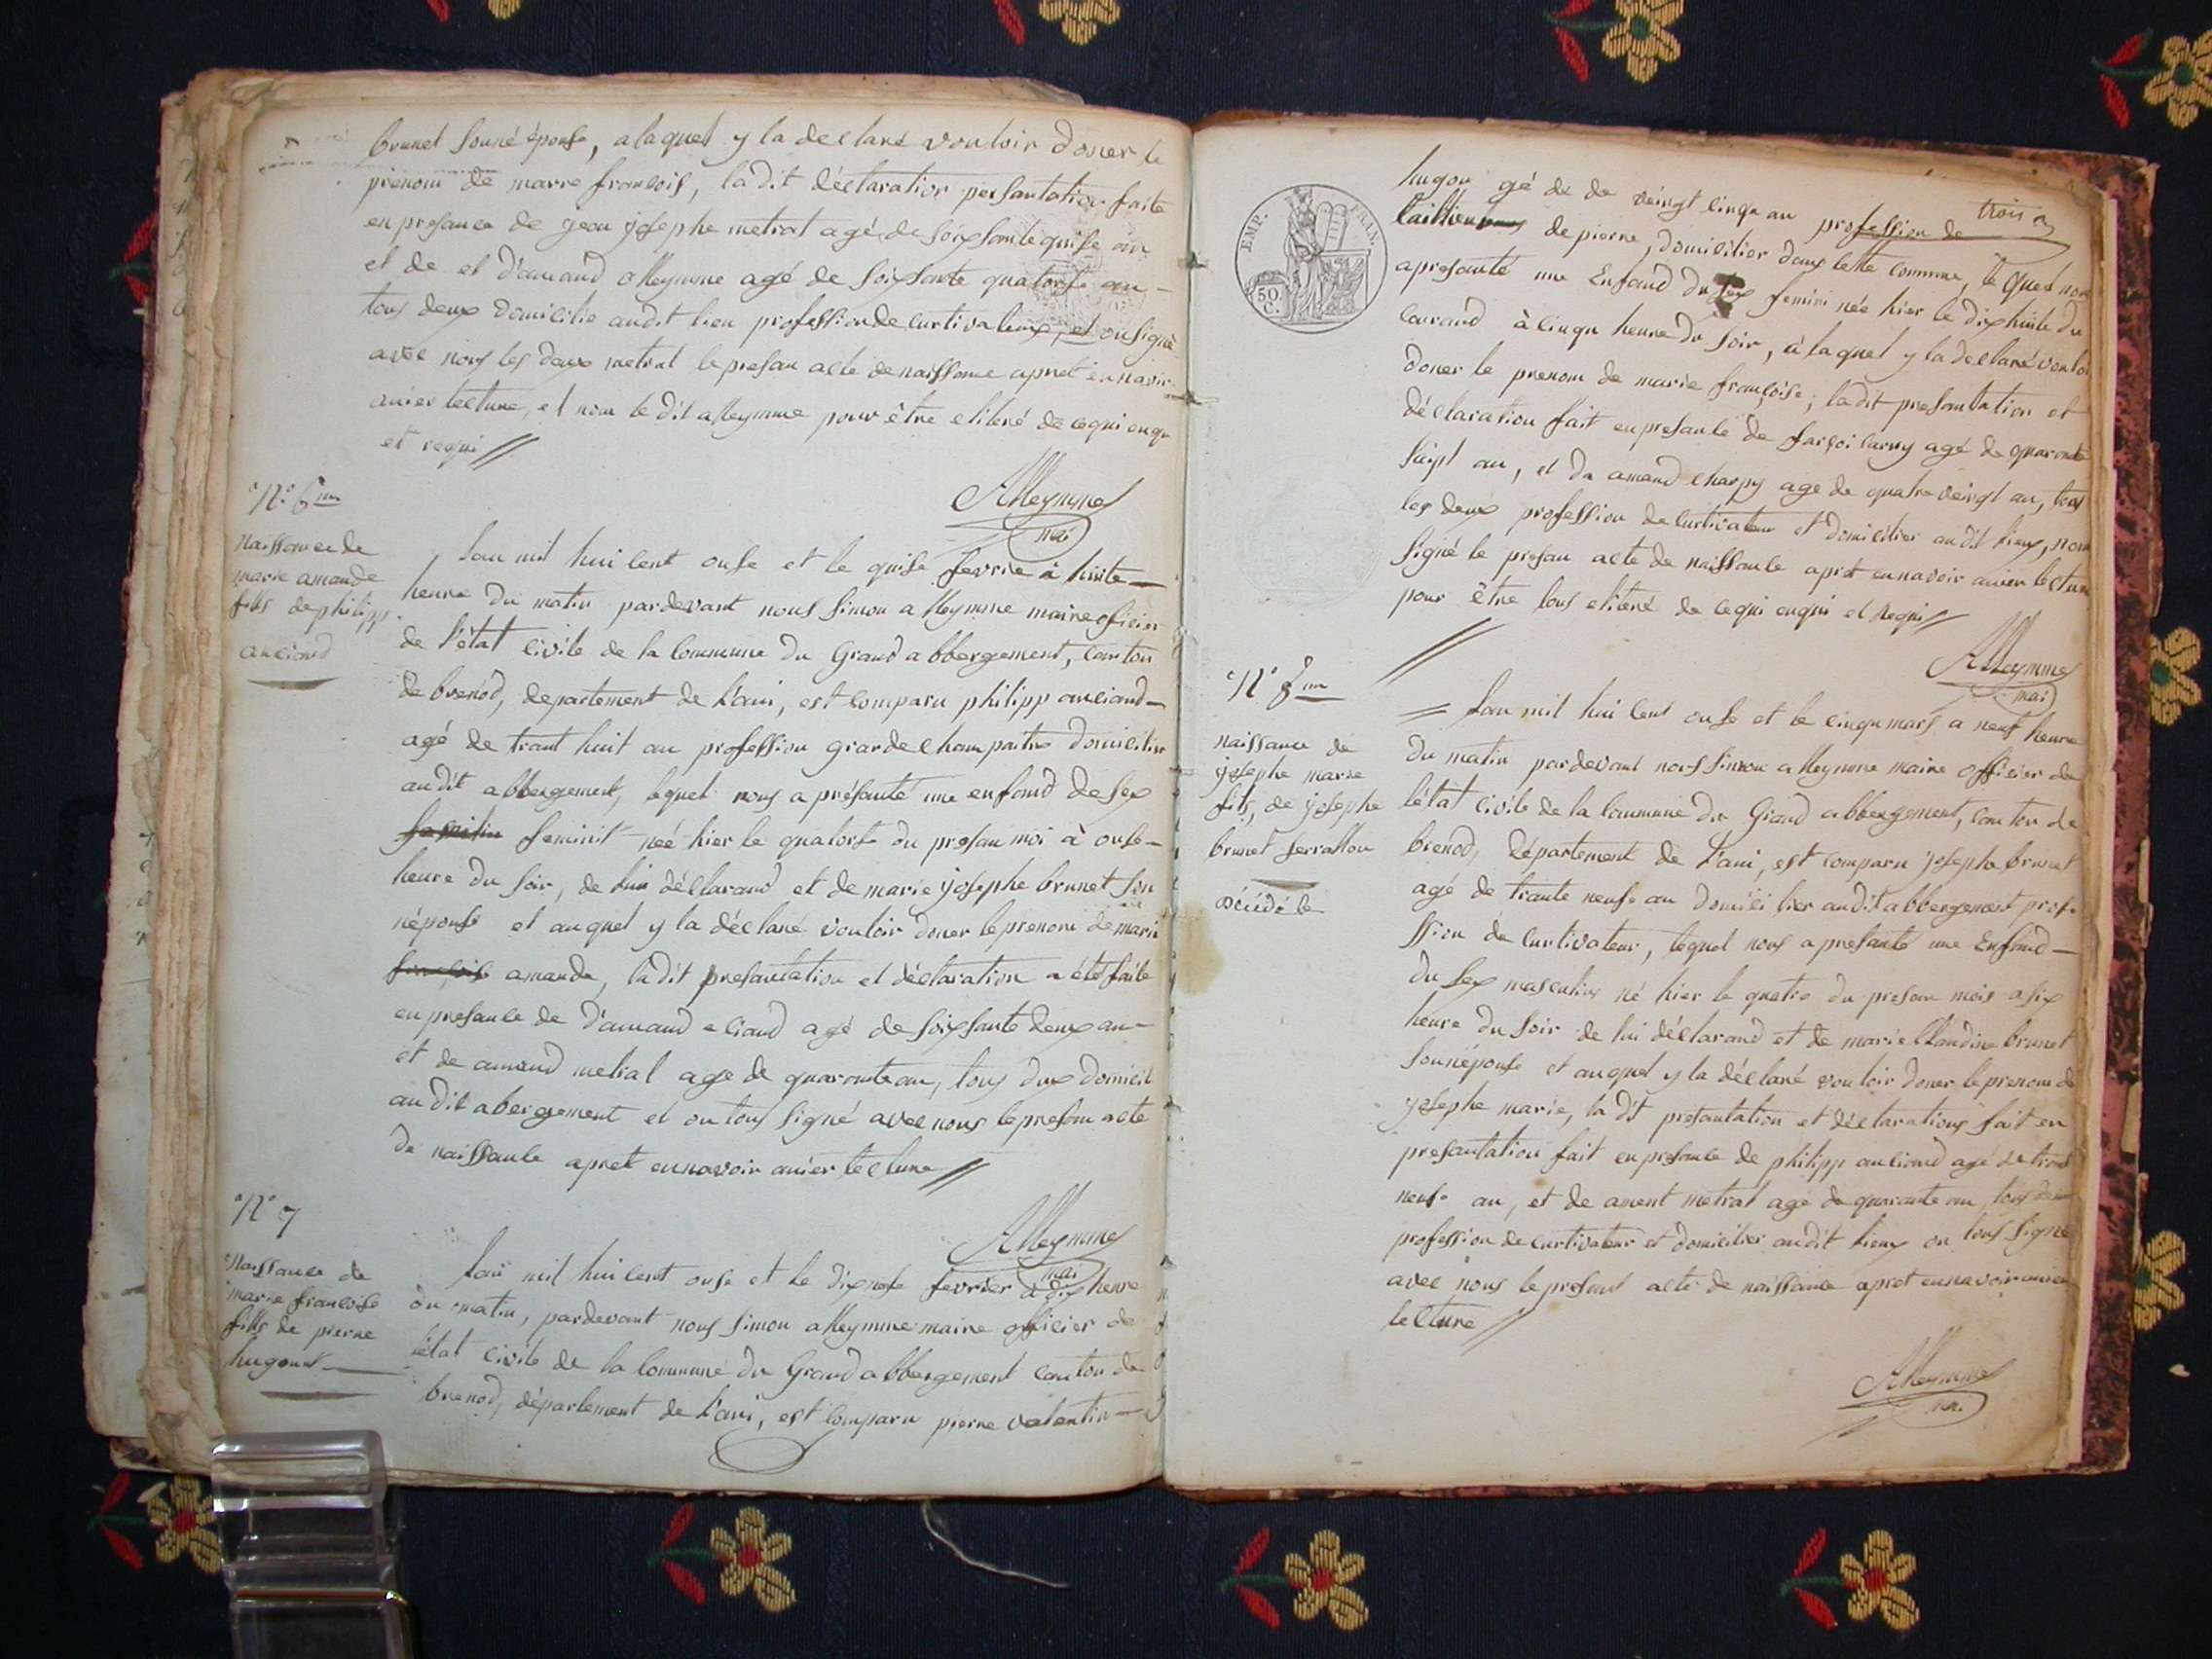 brunet sonné épouse, alaquel y la declaré vouloir doner le
prenom de marie francois, ladit déclaration persantation faite
en presance de jean josephe metrat agé de soixsante quise an
et de et d'amand alleymme agé de soixsante quatorse an —
tous deux domicilie audit lieu profession de curtivateur, et on signé
avec nous les deux metrat le presan acte de naissance apret en navoir
anier lecture, et nom le dit alleymme pour être elitere de cequi enqu
et requi //
Alleymme
mai
N° 6me
naissance de
marie amande
fills de philipp
anciand
lan mil hui cent onse et le quise fevrie à huite —
heure du matin pardevant nous simon alleymme maire oficier
de l'état civile de la commune du Grand abbergement, canton
de brenod, departement de l'ain, est comparu philipp anciand —
agé de trant huit an profession grarde champaitre domicilier
audit abbergement, lequel nous a présanté une enfand de sex
feminit neé hier le quatorse du presan moi à onse —
heure du soir, de lui déclarand et de marie josephe brunet son
népouse et auquel y la déclaré vouloir doner le prenom de marie
francoise amande, ladit presantation et déclaration a été faite
en presance de d'amand anciand agé de soixsante deux an —
et de amand metrat age de quarante an, tous dux domicil
au dit abergement et on tous signé avec nous le presan acte
de naissance apret ennavoir anier lecture //
Alleymme
mai
N° 7
Naissance de
marie francoise
fills de pierre
hugonet
lan mil hui cent onse et le dixnofe fevrier à dix heure
du matin, pardevant nous simon alleymme maire officier de
létat civile de la commune du Grand abbergement canton de
brenod, département de l'ain, est comparu pierre valentin —
trois
hugon gé de de veingt cinqu an profession de
de pierre, domicilier dans cette commune, le quel nou
apresanté une Enfand du sex feminin née hier le dix huite du
courand à cinqu heure du soir, à laquel y la declaré voulo
doner le prenom de marie françoise; ladit presantation et
déclaration fait en presance de farçoi carny agé de quarante
saipt an, et da amand charpy age de quatre veingt an, tous
les deux profession de curtivateur et domicilier audit lieux, nom
signé le presan acte de naissance apret ennavoir anier lecture
pour être tous elitere de cequi enqui et requi //
Alleymme
mai
EMP. FRAN.
50.
C.
N° 8me
naissance de
josephe marie
fils, de josephe
brunet serrallon
décédé le
lan mil hui cent onse et le cinqu mars a neuf heure
du matin pardevant nous simon alleymme maire officier de
létat civile de la commune du Grand abbergement, canton de
brenod, département de l'ain, est comparu josephe brunet
agé de trante neufe an domicilier audit abbergement profe
ssion de curtivateur, lequel nous apresanté une Enfand —
du sex masculin né hier le quatre du presan mois a six
heure du soir de lui déclarand et de marie claudine brunet
sonnépouse et auquel y la déclaré vouloir doner le prenom de
josephe marie, la dit presantation et déclarations fait en
presantation fait en presance de philipp anciand agé de trant
neufe an, et de ament metrat age de quarante an, tous deux
profession de curtivateur et domicilier audit lieux on tous signé
avec nous le presant acte de naissance apret ennavoir anier
lecture //
Alleymme
mai